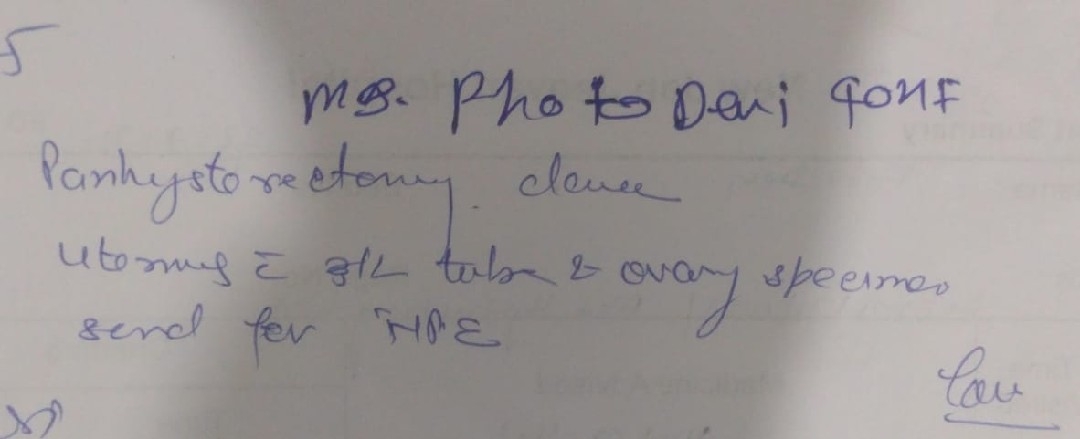 Ms. Photo Devi 40YF
Panhysterectomy done
Uterus c̄ B/L tube & ovary specimen
send for HPE